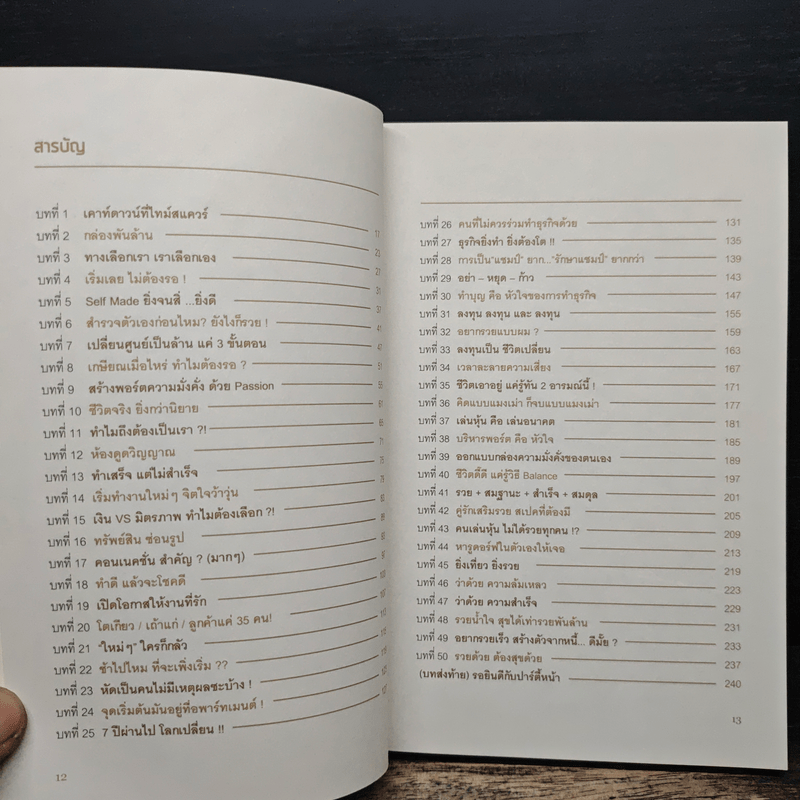 สารบัญ
บทที่ 1 เคาท์ดาวน์ที่ไทม์สแควร์ 17
บทที่ 2 กล่องพันล้าน 23
บทที่ 3 ทางเลือกเรา เราเลือกเอง 27
บทที่ 4 เริ่มเลย ไม่ต้องรอ ! 31
บทที่ 5 Self Made ยิ่งจนสิ่ ...ยิ่งดี 37
บทที่ 6 สำรวจตัวเองก่อนไหม? ยังไงก็รวย ! 41
บทที่ 7 เปลี่ยนศูนย์เป็นล้าน แค่ 3 ขั้นตอน 47
บทที่ 8 เกษียณเมื่อไหร่ ทำไมต้องรอ ? 51
บทที่ 9 สร้างพอร์ตความมั่งคั่ง ด้วย Passion 55
บทที่ 10 ชีวิตจริง ยิ่งกว่านิยาย 61
บทที่ 11 ทำไมถึงต้องเป็นเรา ?! 65
บทที่ 12 ห้องดูดวิญญาณ 71
บทที่ 13 ทำเสร็จ แต่ไม่สำเร็จ 75
บทที่ 14 เริ่มทำงานใหม่ๆ จิตใจว้าวุ่น 79
บทที่ 15 เงิน VS มิตรภาพ ทำไมต้องเลือก ?! 83
บทที่ 16 ทรัพย์สิน ซ่อนรูป 89
บทที่ 17 คอนเนคชั่น สำคัญ ? (มากๆ) 97
บทที่ 18 ทำดี แล้วจะโชคดี 103
บทที่ 19 เปิดโอกาสให้งานที่รัก 107
บทที่ 20 โตเกียว / เถ้าแก่ / ลูกค้าแค่ 35 คน!
บทที่ 21 "ใหม่ๆ" ใครก็กลัว 115
บทที่ 22 ช้าไปไหม ที่จะเพิ่งเริ่ม ??
บทที่ 23 หัดเป็นคนไม่มีเหตุผลซะบ้าง !
บทที่ 24 จุดเริ่มต้นมันอยู่ที่อพาร์ทเมนต์ !
บทที่ 25 7 ปีผ่านไป โลกเปลี่ยน !!
12
บทที่ 26 คนที่ไม่ควรร่วมทำธุรกิจด้วย 131
บทที่ 27 ธุรกิจยิ่งทำ ยิ่งต้องโต !! 135
บทที่ 28 การเป็น"แชมป์" ยาก..."รักษาแชมป์" ยากกว่า 139
บทที่ 29 อย่า – หยุด – ก้าว 143
บทที่ 30 ทำบุญ คือ หัวใจของการทำธุรกิจ 147
บทที่ 31 ลงทุน ลงทุน และ ลงทุน 155
บทที่ 32 อยากรวยแบบผม ? 159
บทที่ 33 ลงทุนเป็น ชีวิตเปลี่ยน 163
บทที่ 34 เวลาละลายความเสี่ยง 167
บทที่ 35 ชีวิตเอาอยู่ แค่รู้ทัน 2 อารมณ์นี้ ! 171
บทที่ 36 คิดแบบแมงเม่า ก็จบแบบแมงเม่า 177
บทที่ 37 เล่นหุ้น คือ เล่นอนาคต 181
บทที่ 38 บริหารพอร์ต คือ หัวใจ 185
บทที่ 39 ออกแบบกล่องความมั่งคั่งของตนเอง 189
บทที่ 40 ชีวิตดี๊ดี แค่รู้วิธี Balance 197
บทที่ 41 รวย + สมฐานะ + สำเร็จ + สมดุล 201
บทที่ 42 คู่รักเสริมรวย สเปคที่ต้องมี 205
บทที่ 43 คนเล่นหุ้น ไม่ได้รวยทุกคน !? 209
บทที่ 44 หารูดอร์ฟในตัวเองให้เจอ 213
บทที่ 45 ยิ่งเที่ยว ยิ่งรวย 219
บทที่ 46 ว่าด้วย ความล้มเหลว 223
บทที่ 47 ว่าด้วย ความสำเร็จ 229
บทที่ 48 รวยน้ำใจ สุขได้เท่ารวยพันล้าน 231
บทที่ 49 อยากรวยเร็ว สร้างตัวจากหนี้... ดีมั้ย ? 233
บทที่ 50 รวยด้วย ต้องสุขด้วย 237
(บทส่งท้าย) รอยินดีกับปาร์ตี้หน้า 240
13